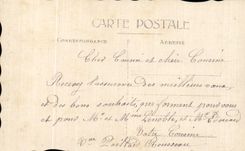 CARTE POSTALE
CORRESPONDANCE ADRESSE
Cher Cousin et chère Cousine
Recevez l'assurance des meilleurs vœux
et des bons souhaits que forment pour vous
et pour Mr et Mme Lenoble et Mr
Votre Cousine
Vve Rousseau